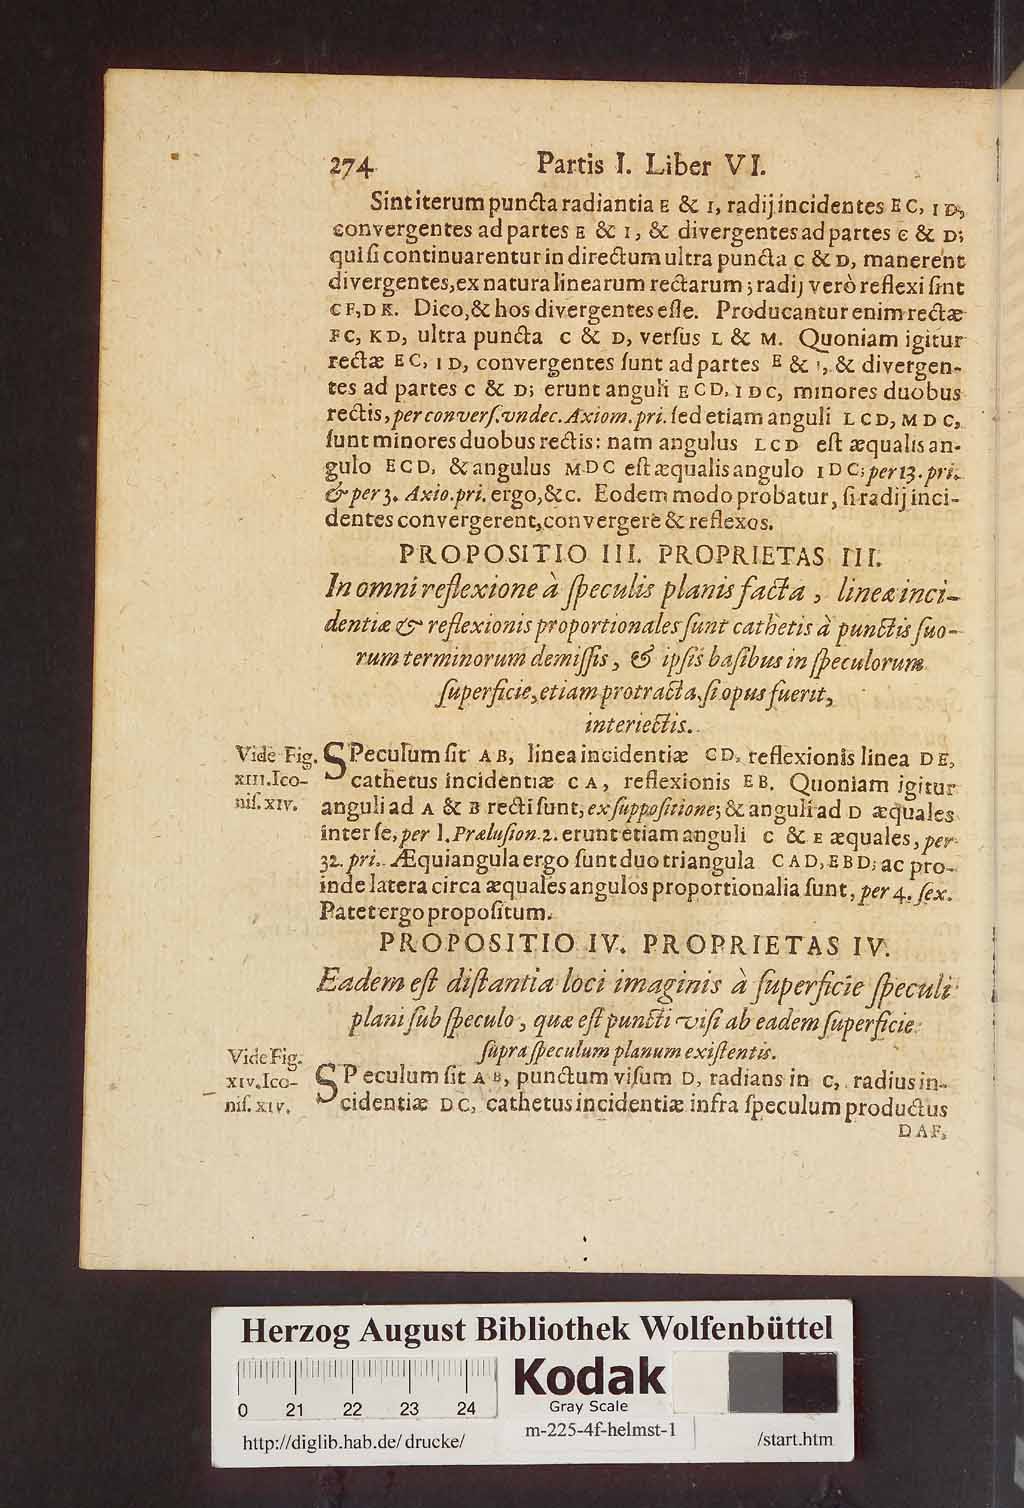 274 Partis I. Liber VI.
Sint iterum puncta radiantia E & I, radij incidentes EC, ID,
convergentes ad partes E & I, & divergentes ad partes C & D;
qui ſi continuarentur in directum ultra puncta C & D, manerent
divergentes, ex natura linearum rectarum; radij verò reflexi ſint
CF, DK. Dico, & hos divergentes eſſe. Producantur enim rectæ
FC, KD, ultra puncta C & D, verſus L & M. Quoniam igitur
rectæ EC, ID, convergentes ſunt ad partes E & I, & divergen-
tes ad partes C & D; erunt anguli ECD, IDC, minores duobus
rectis, per converſ. vndec. Axiom. pri. ſed etiam anguli LCD, MDC,
ſunt minores duobus rectis: nam angulus LCD eſt æqualis an-
gulo ECD, & angulus MDC eſt æqualis angulo IDC; per 13. pri.
& per 3. Axio. pri. ergo, &c. Eodem modo probatur, ſi radij inci-
dentes convergerent, convergere & reflexos.
PROPOSITIO III. PROPRIETAS III.
In omni reflexione à ſpeculis planis facta, lineæ inci-
dentiæ & reflexionis proportionales ſunt cathetis à punctis ſuo-
rum terminorum demiſſis, & ipſis baſibus in ſpeculorum
ſuperficie, etiam protracta, ſi opus fuerit,
interiectis.
Vide Fig.
XIII. Ico-
niſ. XIV.
SPeculum ſit AB, linea incidentiæ CD, reflexionis linea DE,
cathetus incidentiæ CA, reflexionis EB. Quoniam igitur
anguli ad A & B recti ſunt, ex ſuppoſitione; & anguli ad D æquales
inter ſe, per l. Præluſion. 2. erunt etiam anguli C & E æquales, per
32. pri. Æquiangula ergo ſunt duo triangula CAD, EBD; ac pro-
inde latera circa æquales angulos proportionalia ſunt, per 4. ſex.
Patet ergo propoſitum.
PROPOSITIO IV. PROPRIETAS IV.
Eadem eſt diſtantia loci imaginis à ſuperficie ſpeculi
plani ſub ſpeculo, quæ eſt puncti viſi ab eadem ſuperficie
ſupra ſpeculum planum exiſtentis.
Vide Fig.
XIV. Ico-
niſ. XIV.
SPeculum ſit AB, punctum viſum D, radians in C, radius in-
cidentiæ DC, cathetus incidentiæ infra ſpeculum productus
DAF,
Herzog August Bibliothek Wolfenbüttel
Kodak
Gray Scale
0 21 22 23 24
http://diglib.hab.de/drucke/ m-225-4f-helmst-1 /start.htm